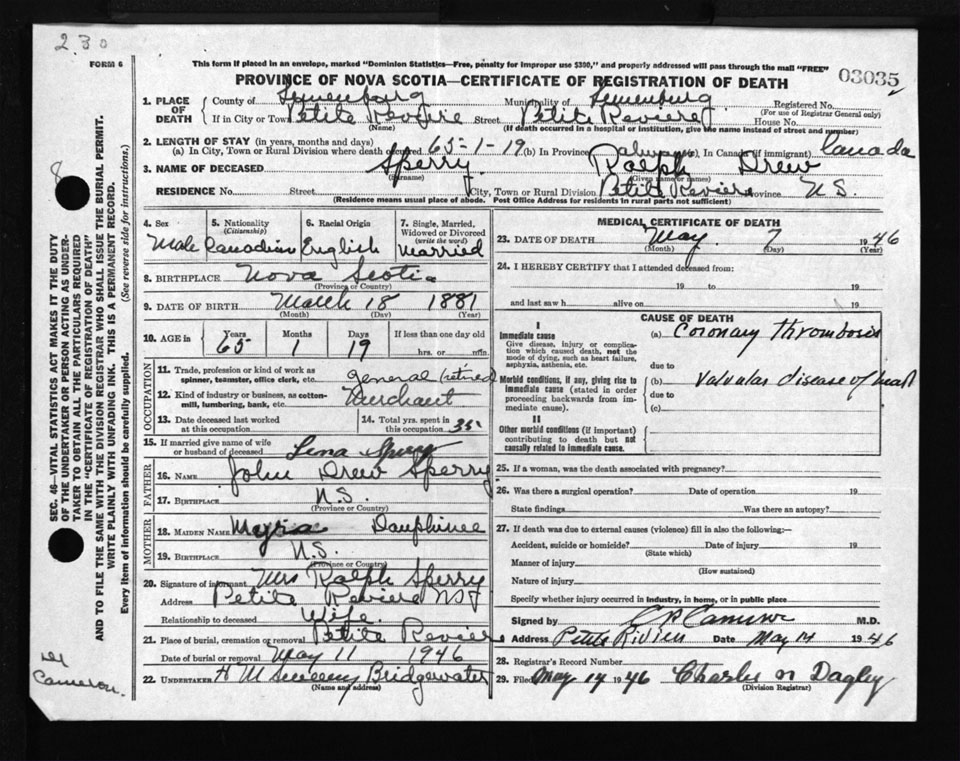 230
FORM 6
This form if placed in an envelope, marked "Dominion Statistics—Free, penalty for improper use $300," and properly addressed will pass through the mail "FREE"
PROVINCE OF NOVA SCOTIA—CERTIFICATE OF REGISTRATION OF DEATH
03035
1. PLACE OF DEATH { County of Lunenburg Municipality of Lunenburg Registered No.
(For use of Registrar General only)
If in City or Town Petite Reviere Street Petite Reviere House No.
(Name) (If death occurred in a hospital or institution, give the name instead of street and number)
2. LENGTH OF STAY (in years, months and days)
(a) In City, Town or Rural Division where death occurred 65-1-19 (b) In Province always (c) In Canada (if immigrant) Canada
3. NAME OF DECEASED Sperry Ralph Drew
(Surname) (Given name or names)
RESIDENCE No. Street City, Town or Rural Division Petite Reviere Province N.S.
(Residence means usual place of abode. Post Office Address for residents in rural parts not sufficient)
4. Sex Male
5. Nationality (Citizenship) Canadian
6. Racial Origin English
7. Single, Married, Widowed or Divorced (write the word) Married
8. BIRTHPLACE Nova Scotia
(Province or Country)
9. DATE OF BIRTH March 18 1881
(Month) (Day) (Year)
10. AGE in { Years 65 Months 1 Days 19 If less than one day old
hrs. or min.
OCCUPATION
11. Trade, profession or kind of work as spinner, teamster, office clerk, etc. general (retired)
12. Kind of industry or business, as cotton-mill, lumbering, bank, etc. Merchant
13. Date deceased last worked at this occupation
14. Total yrs. spent in this occupation 35
15. If married give name of wife or husband of deceased Lena Sperry
FATHER
16. NAME John Drew Sperry
17. BIRTHPLACE N.S.
(Province or Country)
MOTHER
18. MAIDEN NAME Dauphinee
19. BIRTHPLACE N.S.
(Province or Country)
20. Signature of informant Mrs Ralph Sperry
Address Petite Reviere
Relationship to deceased Wife
21. Place of burial, cremation or removal Petite Reviere
Date of burial or removal May 11 1946
22. UNDERTAKER H M Sweeny Bridgewater
(Name and address)
MEDICAL CERTIFICATE OF DEATH
23. DATE OF DEATH May 7 1946
(Month) (Day) (Year)
24. I HEREBY CERTIFY that I attended deceased from
19 to 19
and last saw h alive on 19
CAUSE OF DEATH
I
Immediate cause
Give disease, injury or complication which caused death, not the mode of dying, such as heart failure, asphyxia, asthenia, etc.
(a) Coronary thrombosis
due to
Morbid conditions, if any, giving rise to immediate cause (stated in order proceeding backwards from immediate cause).
(b) valvular disease of heart
due to
(c)
II
Other morbid conditions (if important) contributing to death but not causally related to immediate cause.
25. If a woman, was the death associated with pregnancy?
26. Was there a surgical operation? Date of operation 19
State findings Was there an autopsy?
27. If death was due to external causes (violence) fill in also the following:—
Accident, suicide or homicide? Date of injury 19
(State which)
Manner of injury
(How sustained)
Nature of injury
Specify whether injury occurred in industry, in home, or in public place
Signed by C R Cameron M.D.
Address Petite Riviere Date May 14 1946
28. Registrar's Record Number
29. Filed May 14 1946 Charles N Dagley
(Division Registrar)
SEC. 46—VITAL STATISTICS ACT MAKES IT THE DUTY
OF THE UNDERTAKER OR PERSON ACTING AS UNDER-
TAKER TO OBTAIN ALL THE PARTICULARS REQUIRED
IN THE "CERTIFICATE OF REGISTRATION OF DEATH"
AND TO FILE THE SAME WITH THE DIVISION REGISTRAR WHO SHALL ISSUE THE BURIAL PERMIT.
WRITE PLAINLY WITH UNFADING INK. THIS IS A PERMANENT RECORD.
Every item of information should be carefully supplied. (See reverse side for instructions.)
8
Dr Cameron.